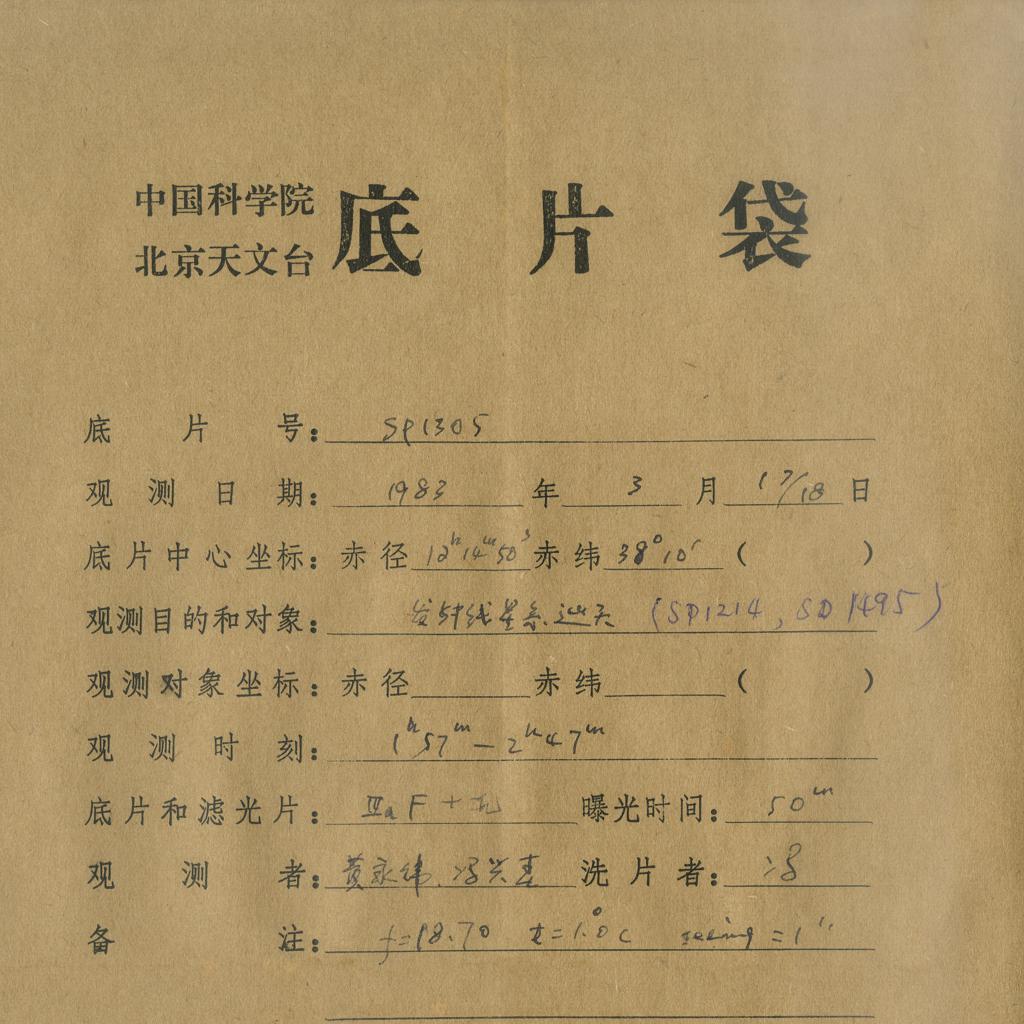 中国科学院
北京天文台 底片袋
底片号: SP1305
观测日期: 1983 年 3 月 17/18 日
底片中心坐标: 赤径 12h14m50s 赤纬 38°10′ ( )
观测目的和对象: 发射线星系巡天 (SP1214, SD1495)
观测对象坐标: 赤径 赤纬 ( )
观测时刻: 1h57m—2h47m
底片和滤光片: IIaF+无 曝光时间: 50m
观测者: 黄永伟.冯兴春 洗片者: 冯
备注: f=18.70 t=1.0°C seeing=1″